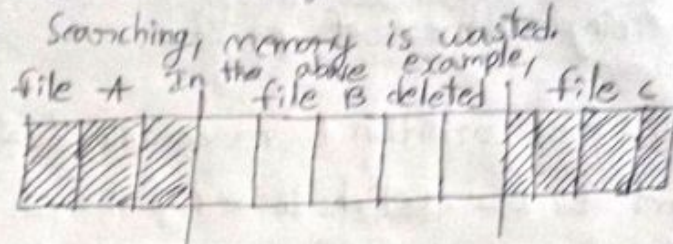 Searching, memory is wasted.
In the above example,
file A file B deleted file C